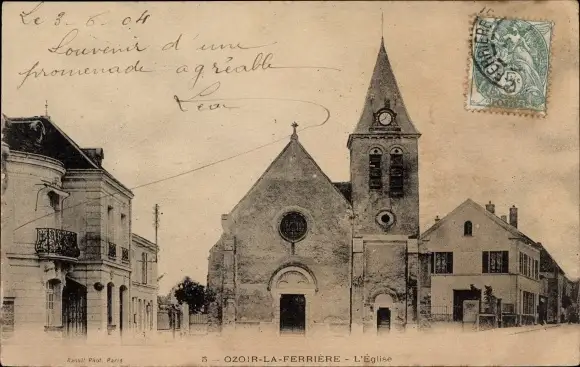 Le 3-6-04
Souvenir d'une
promenade agréable
Léon
5 - OZOIR-LA-FERRIÈRE - L'Église
Phot. Paris